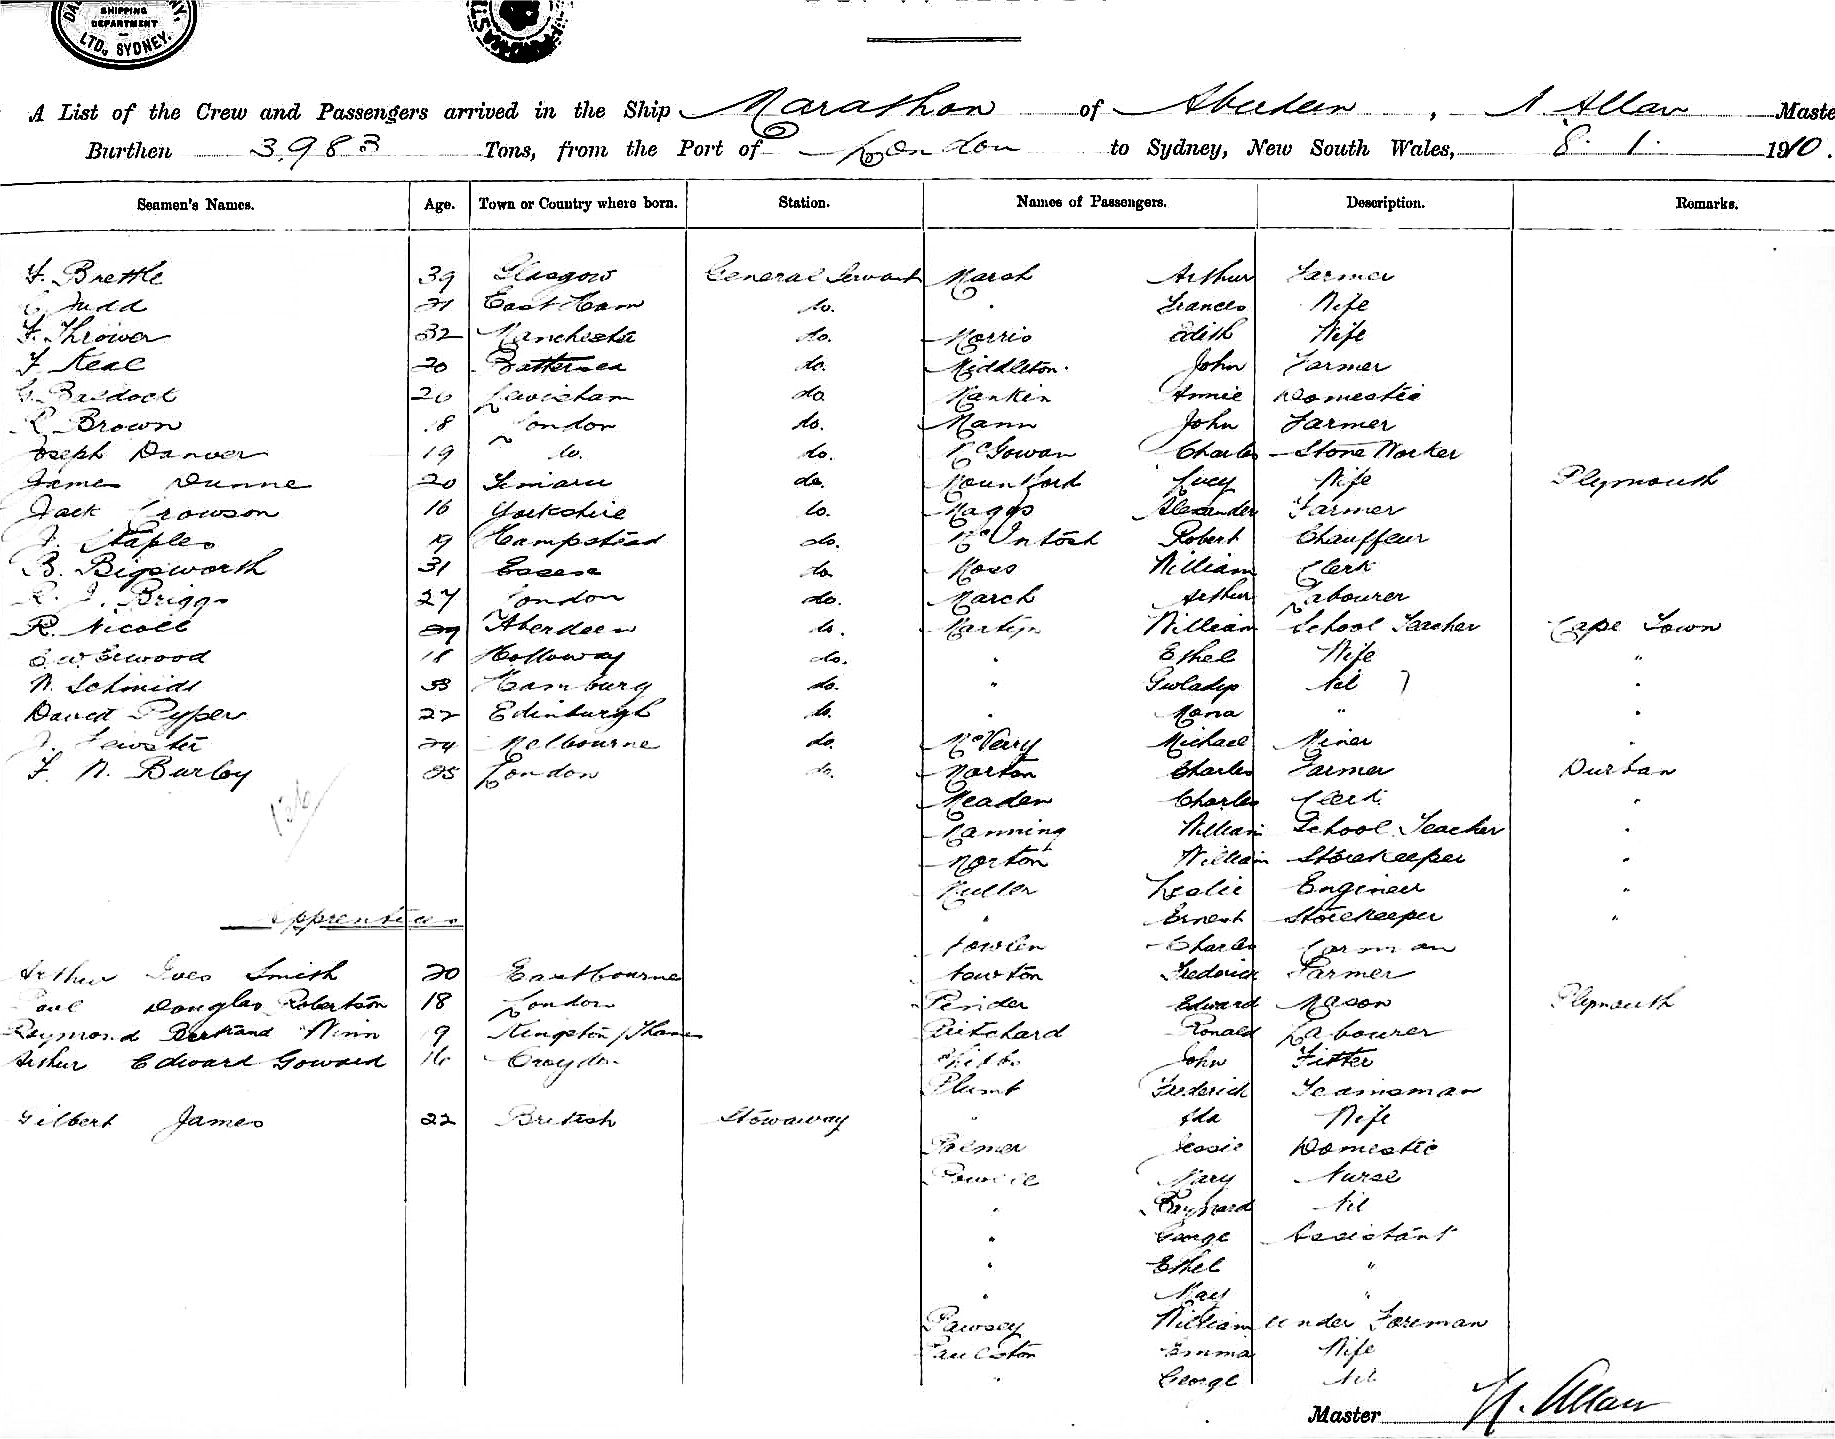 SHIPPING
DEPARTMENT
LTD, SYDNEY.
A List of the Crew and Passengers arrived in the Ship Marathon of Aberdeen, Allan Maste
Burthen 3983 Tons, from the Port of London to Sydney, New South Wales, 8. 1. 1910.
Seamen's Names. Age. Town or Country where born. Station. Names of Passengers. Description. Remarks.
F. Brettle 39 Glasgow General Servant Marsh Arthur Farmer
C Judd 21 East Ham do. " Frances Wife
F. Thrower 32 Manchester do. Morris Edith Wife
F. Neal 20 Battersea do. Middleton. John Farmer
G. Baldock 20 Lewisham do. Rankin Annie Domestic
R Brown 18 London do. Mann John Farmer
Joseph Danver 19 do. do. McGowan Charles Stone Worker
James Dunne 20 do. Mountford Lucy Wife Plymouth
Jack Crowson 16 Yorkshire do. Maggs Alexander Farmer
J. Staples 19 Hampstead do. McIntosh Robert Chauffeur
B. Bigsworth 31 Essex do. Moss William Clerk
R. J. Briggs 27 London do. March Arthur Labourer
R. Nicoll Aberdeen do. Martyn William School Teacher Cape Town
18 Holloway do. " Ethel Wife "
W. Schmidt 33 Hamburg do. " Gwladys Nil "
David Pyper 22 Edinburgh do. " Mona " "
J. Fewster 24 Melbourne do. McVerry Michael Miner "
F. W. Burley 25 London do. Morton Charles Farmer Durban
Meaden Charles Clerk "
Manning William School Teacher "
Norton William Storekeeper "
Muller Leslie Engineer "
Apprentices " Ernest Storekeeper "
Charles Carman
Arthur Ives Smith 20 Eastbourne Newton Frederick Farmer
Paul Douglas Robertson 18 London Pender Edward Mason Plymouth
Raymond Bertrand Winn 19 Kingston/Thames Pritchard Ronald Labourer
Arthur Edward Goward 16 Croydon Phibbs John Fitter
Plumb Frederick Teamsman
Gilbert James 22 British Stowaway " Ada Wife
Palmer Jessie Domestic
Mary Nurse
" Raynard Nil
" George Assistant
" Ethel "
" May "
Pawsey William Under Foreman
Emma Wife
" George Nil
Master Allan